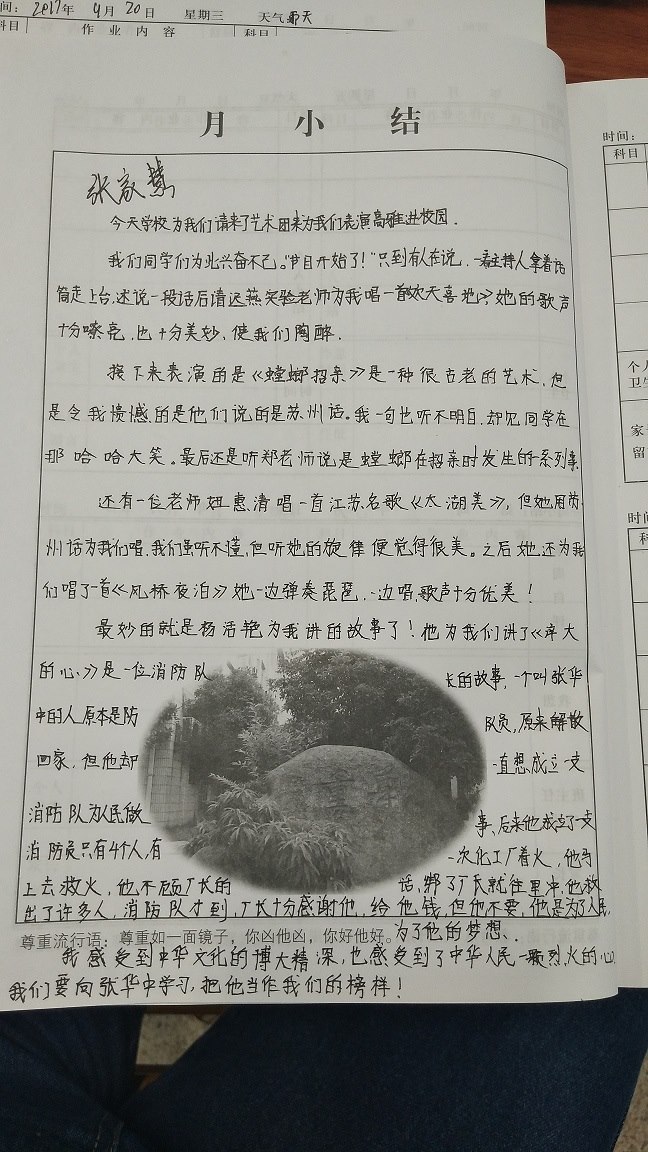 间: 2017年 4月 20日 星期三 天气 雨天
科目 作业内容 科目
月小结
时间:
科目
张家慧
今天学校为我们请来了艺术团来为我们表演高雅进校园.
我们同学们为此兴奋不已。"节目开始了!"只到有人在说,一看主持人拿着话
筒走上台,述说一段话后请这燕实验老师为我唱一首《欢天喜地》,她的歌声
十分嘹亮,也十分美妙,使我们陶醉.
接下来表演的是《螳螂招亲》是一种很古老的艺术,但
是令我愤憾的是他们说的是苏州话。我一句也听不明白,却见同学在
那哈哈大笑。最后还是听郑老师说是螳螂在招亲时发生的一系列事
还有一位老师妞惠清唱一首江苏名歌《太湖美》,但她用苏
州话为我们唱,我们虽听不懂,但听她的旋律便觉得很美。之后她还为我
们唱了一首《风桥夜泊》她一边弹奏琵琶,一边唱,歌声十分优美!
最妙的就是杨洁艳为我讲的故事了!他为我们讲了《大
的心》是一位消防队长的故事,一个叫张华
中的人原本是防队员,原来解散
回家,但他却一直想成立一支
消防队为人民做事,后来他成立了一支
消防员只有4个人,有一次化工厂着火,他马
上去救火,他不顾厂长的话,绑了厂长就往里冲,他救
出了许多人,消防队才到,厂长十分感谢他,给他钱,但他不要,他是为了人民,
为了他的梦想.
尊重流行语:尊重如一面镜子,你凶他凶,你好他好。
我感受到中华文化的博大精深,也感受到了中华人民一颗烈火的心
我们要向张华中学习,把他当作我们的榜样!
个人
卫生
家
留
时间